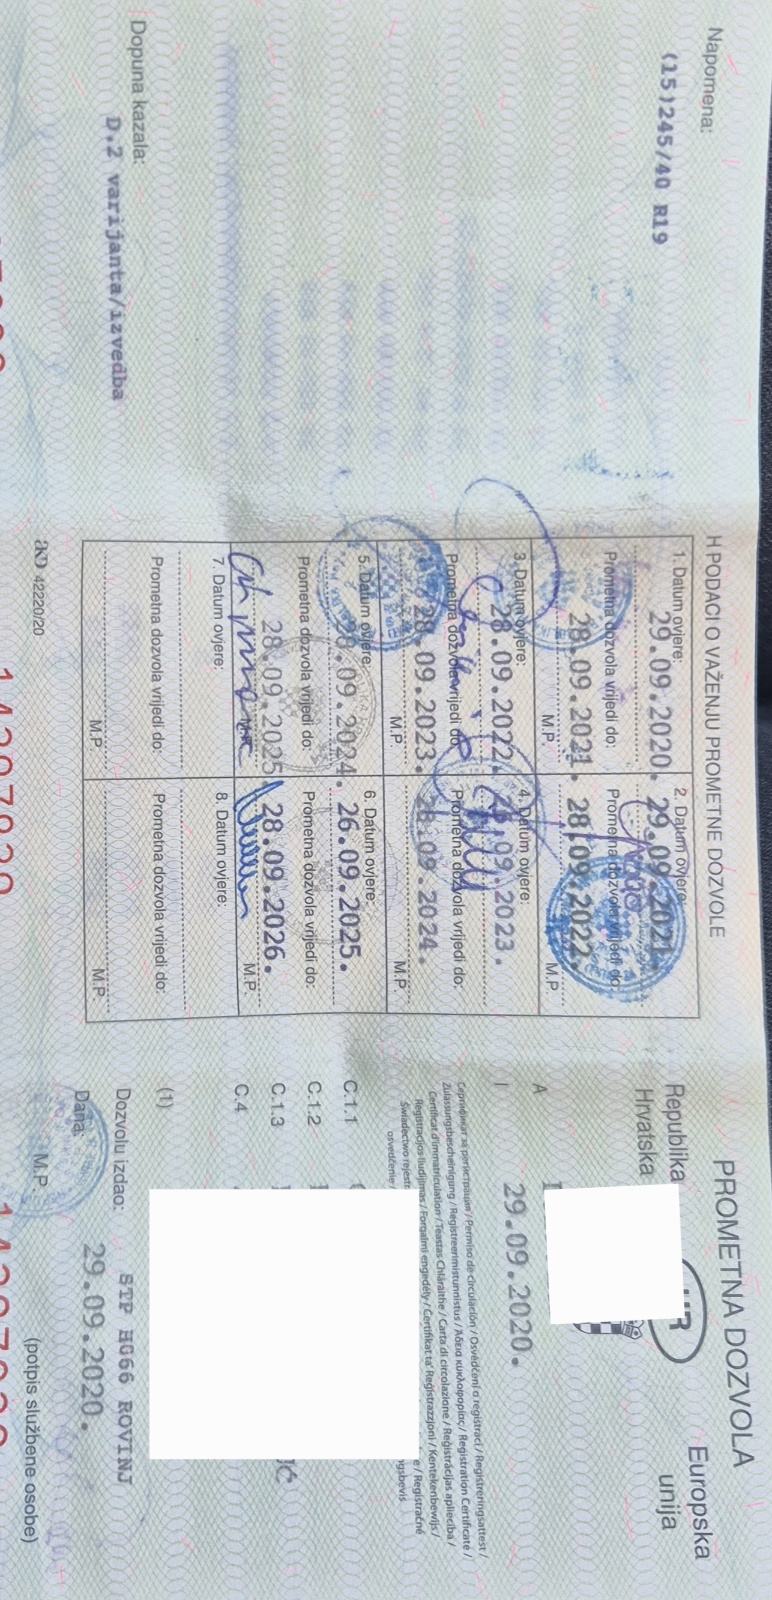 Napomena:
(15)245/40 R19
Dopuna kazala:
D.2 varijanta/izvedba
H PODACI O VAŽENJU PROMETNE DOZVOLE
1. Datum ovjere:
29.09.2020.
Prometna dozvola vrijedi do:
28.09.2021.
M.P.
2. Datum ovjere:
29.09.2021.
Prometna dozvola vrijedi do:
28.09.2022.
M.P.
3. Datum ovjere:
28.09.2022.
Prometna dozvola vrijedi do:
28.09.2023.
M.P.
4. Datum ovjere:
28.09.2023.
Prometna dozvola vrijedi do:
28.09.2024.
M.P.
5. Datum ovjere:
.09.2024.
Prometna dozvola vrijedi do:
28.09.2025.
6. Datum ovjere:
26.09.2025.
Prometna dozvola vrijedi do:
28.09.2026.
M.P.
7. Datum ovjere:
Prometna dozvola vrijedi do:
M.P.
8. Datum ovjere:
Prometna dozvola vrijedi do:
M.P.
AKD 42220/20
PROMETNA DOZVOLA
Republika
Hrvatska
Europska
unija
A
I
29.09.2020.
Сертификат за регистрация / Permiso de circulación / Osvědčení o registraci / Registreringsattest /
Zulassungsbescheinigung / Registreerimistunnistus / Άδεια κυκλοφορίας / Registration Certificate /
Certificat d'immatriculation / Teastas Chláraithe / Carta di circolazione / Reģistrācijas apliecība /
Registracijos liudijimas / Forgalmi engedély / Ċertifikat ta' Reġistrazzjoni / Kentekenbewijs /
Świadectwo rejestr e / Registračné
osvedčenie / ngsbevis
C.1.1
C.1.2
C.1.3
IĆ
C.4
(1)
Dozvolu izdao:
STP H066 ROVINJ
Dana:
29.09.2020.
M.P.
(potpis službene osobe)